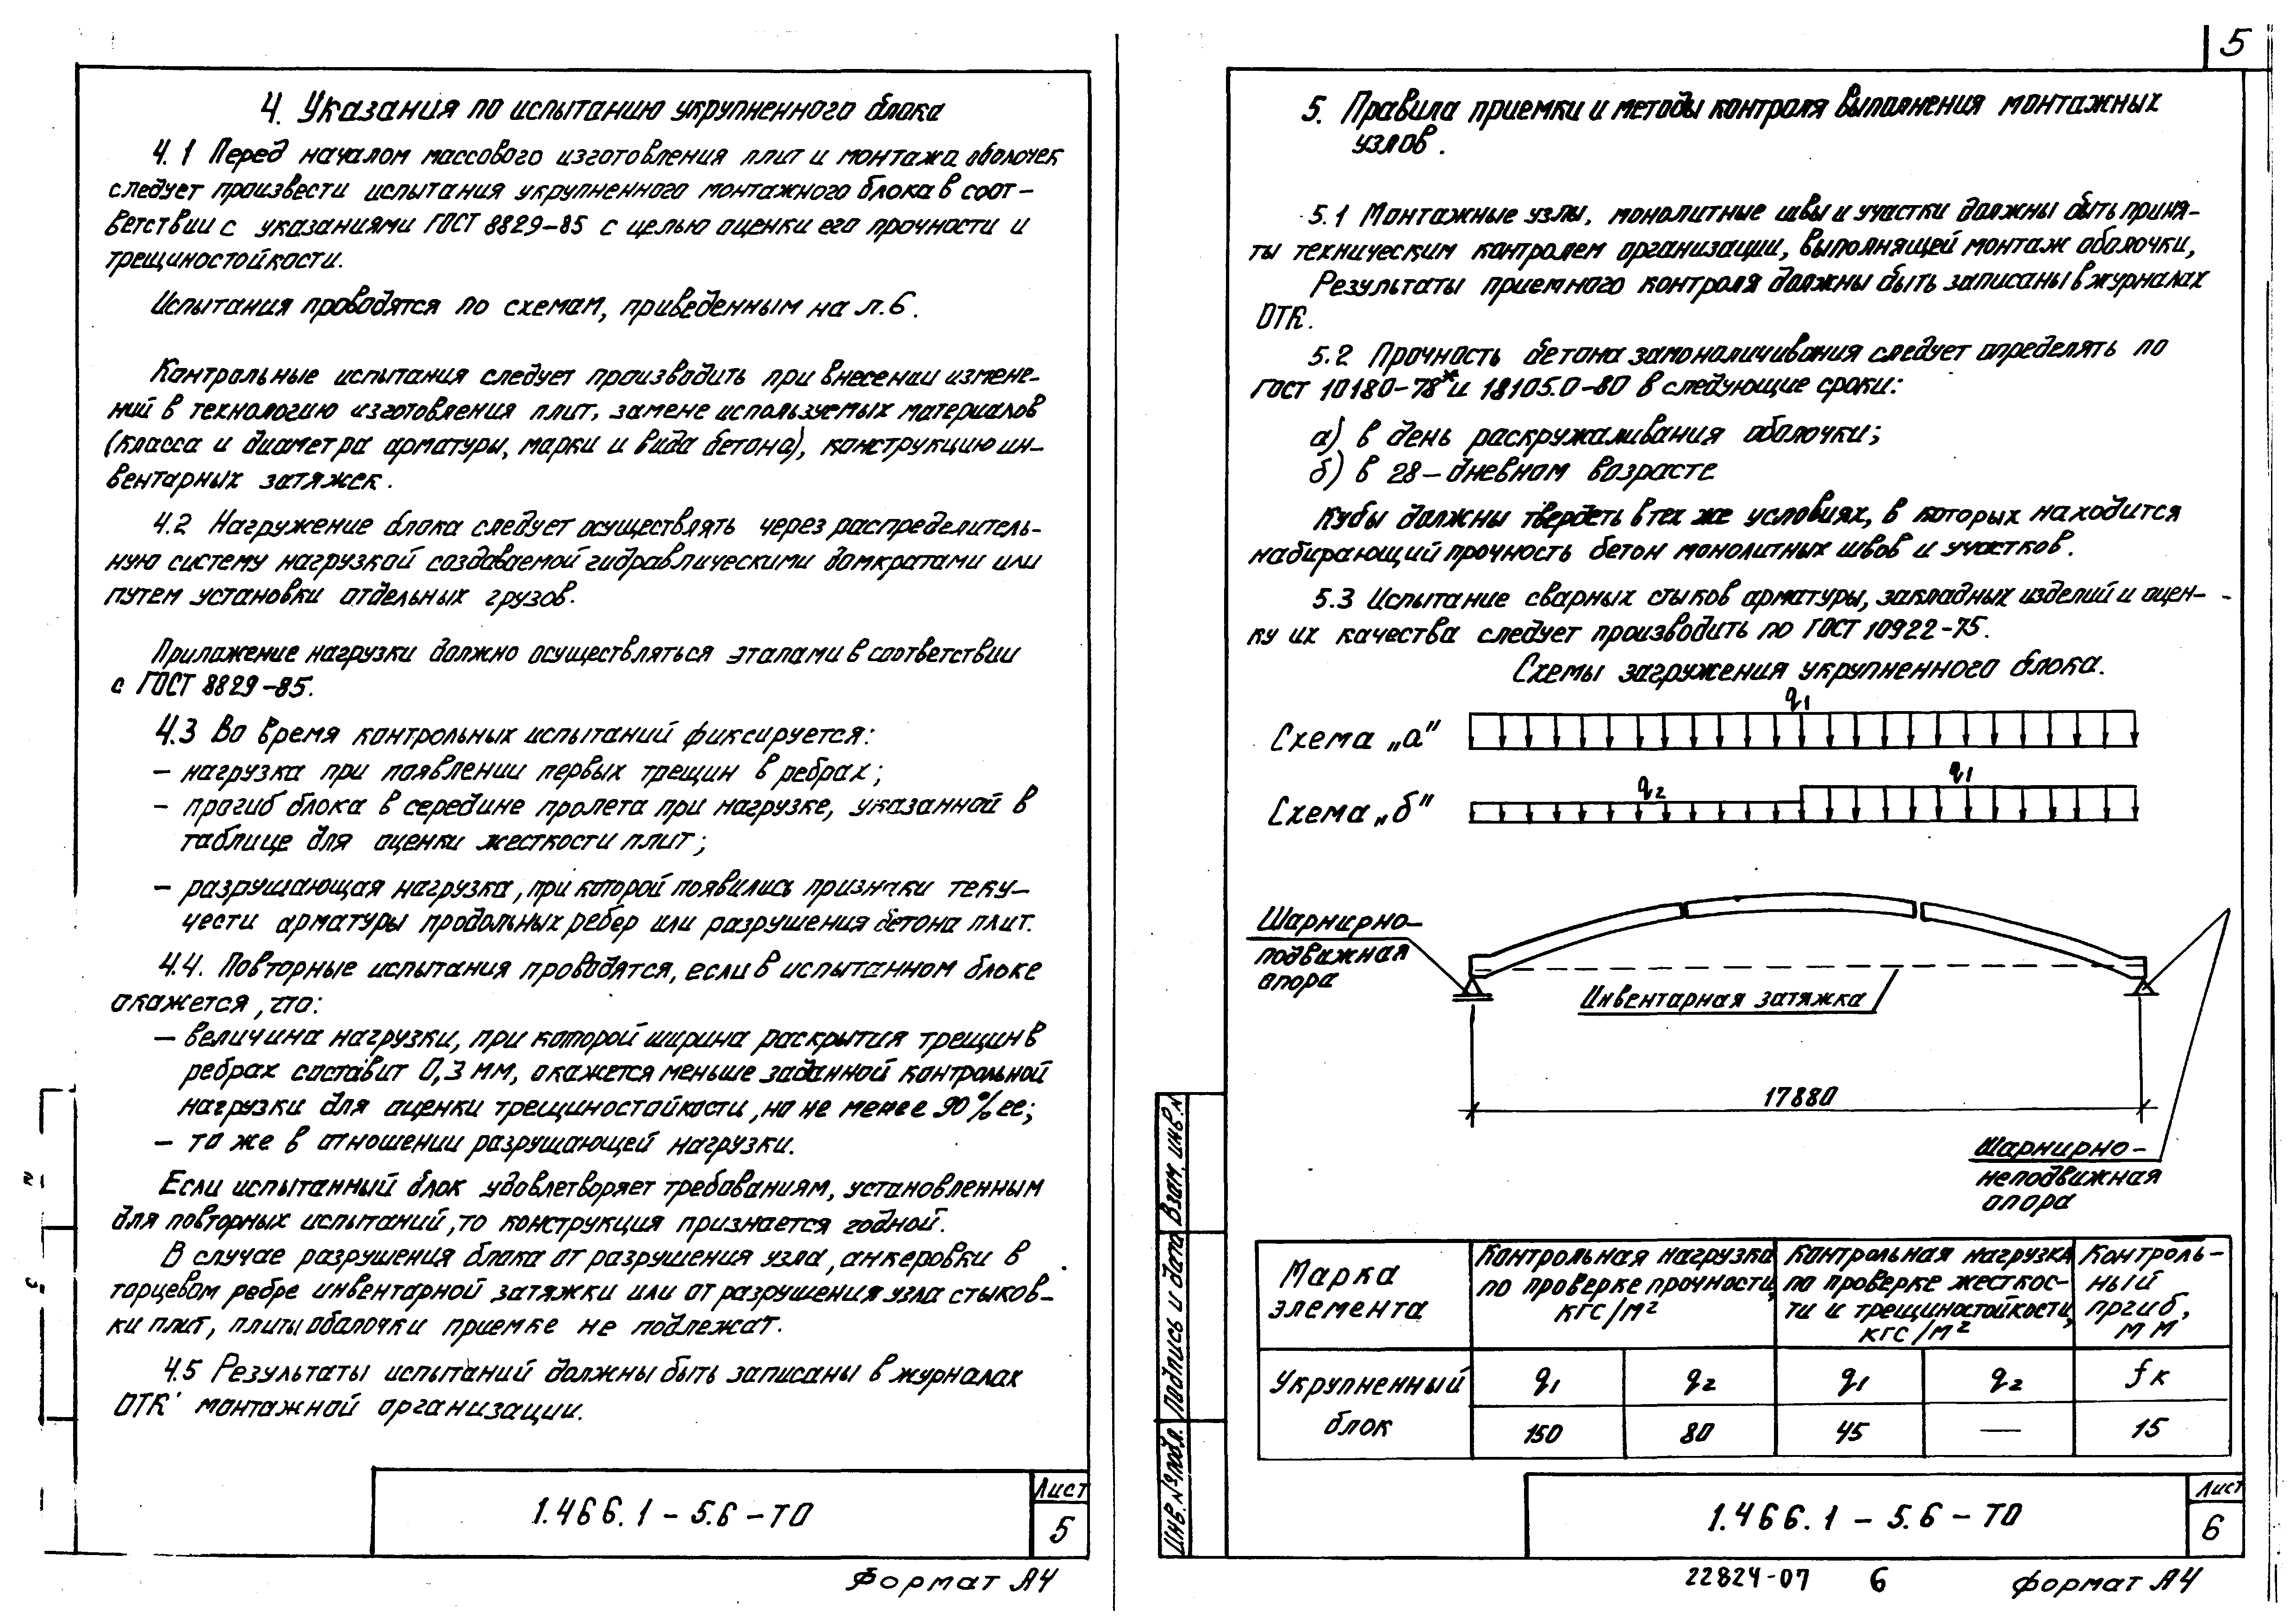 4. Указания по испытанию укрупненного блока
4.1 Перед началом массового изготовления плит и монтажа оболочек
следует произвести испытания укрупненного монтажного блока в соот-
ветствии с указаниями ГОСТ 8829-85 с целью оценки его прочности и
трещиностойкости.
Испытания проводятся по схемам, приведенным на л.6.
Контрольные испытания следует производить при внесении измене-
ний в технологию изготовления плит, замене используемых материалов
(класса и диаметра арматуры, марки и вида бетона), конструкцию ин-
вентарных затяжек.
4.2 Нагружение блока следует осуществлять через распределитель-
ную систему нагрузкой создаваемой гидравлическими домкратами или
путем установки отдельных грузов.
Приложение нагрузки должно осуществляться этапами в соответствии
с ГОСТ 8829-85.
4.3 Во время контрольных испытаний фиксируется:
- нагрузка при появлении первых трещин в ребрах;
- прогиб блока в середине пролета при нагрузке, указанной в
таблице для оценки жесткости плит;
- разрушающая нагрузка, при которой появились признаки теку-
чести арматуры продольных ребер или разрушения бетона плит.
4.4. Повторные испытания проводятся, если в испытанном блоке
окажется, что:
- величина нагрузки, при которой ширина раскрытия трещин в
ребрах составит 0,3 мм, окажется меньше заданной контрольной
нагрузки для оценки трещиностойкости, но не менее 90% ее;
- то же в отношении разрушающей нагрузки.
Если испытанный блок удовлетворяет требованиям, установленным
для повторных испытаний, то конструкция признается годной.
В случае разрушения блока от разрушения узла, анкеровки в
торцевом ребре инвентарной затяжки или от разрушения узла стыков-
ки плит, плиты оболочки приемке не подлежат.
4.5 Результаты испытаний должны быть записаны в журналах
ОТК монтажной организации.
1.466.1-5.6-ТО
Лист
5
Формат А4
5
5. Правила приемки и методы контроля выполнения монтажных
узлов.
5.1 Монтажные узлы, монолитные швы и участки должны быть приня-
ты техническим контролем организации, выполнящей монтаж оболочки,
Результаты приемного контроля должны быть записаны в журналах
ОТК.
5.2 Прочность бетона замоноличивания следует определять по
ГОСТ 10180-78* и 18105.0-80 в следующие сроки:
а) в день раскружаливания оболочки;
б) в 28-дневном возрасте
Кубы должны твердеть в тех же условиях, в которых находится
набирающий прочность бетон монолитных швов и участков.
5.3 Испытание сварных стыков арматуры, закладных изделий и оцен-
ку их качества следует производить по ГОСТ 10922-75.
Схемы загружения укрупненного блока.
q1
Схема „а"
q2 q1
Схема „б"
Шарнирно-
подвижная
опора
Инвентарная затяжка
17880
Шарнирно-
неподвижная
опора
Марка элемента
Контрольная нагрузка по проверке прочности, кгс/м²
Контрольная нагрузка по проверке жесткос-ти и трещиностойкости, кгс/м²
Контроль-ный пргиб, мм
Укрупненный блок
q1 q2 q1 q2 fк
150 80 45 — 15
Инв. № подл. Подпись и дата Взам. инв. N
1.466.1-5.6-ТО
Лист
6
22824-07 6 Формат А4